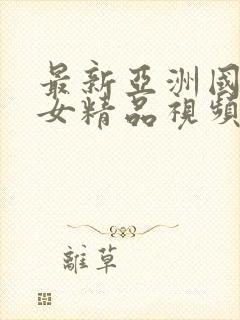 最新亞洲國
女精品視頻
離草